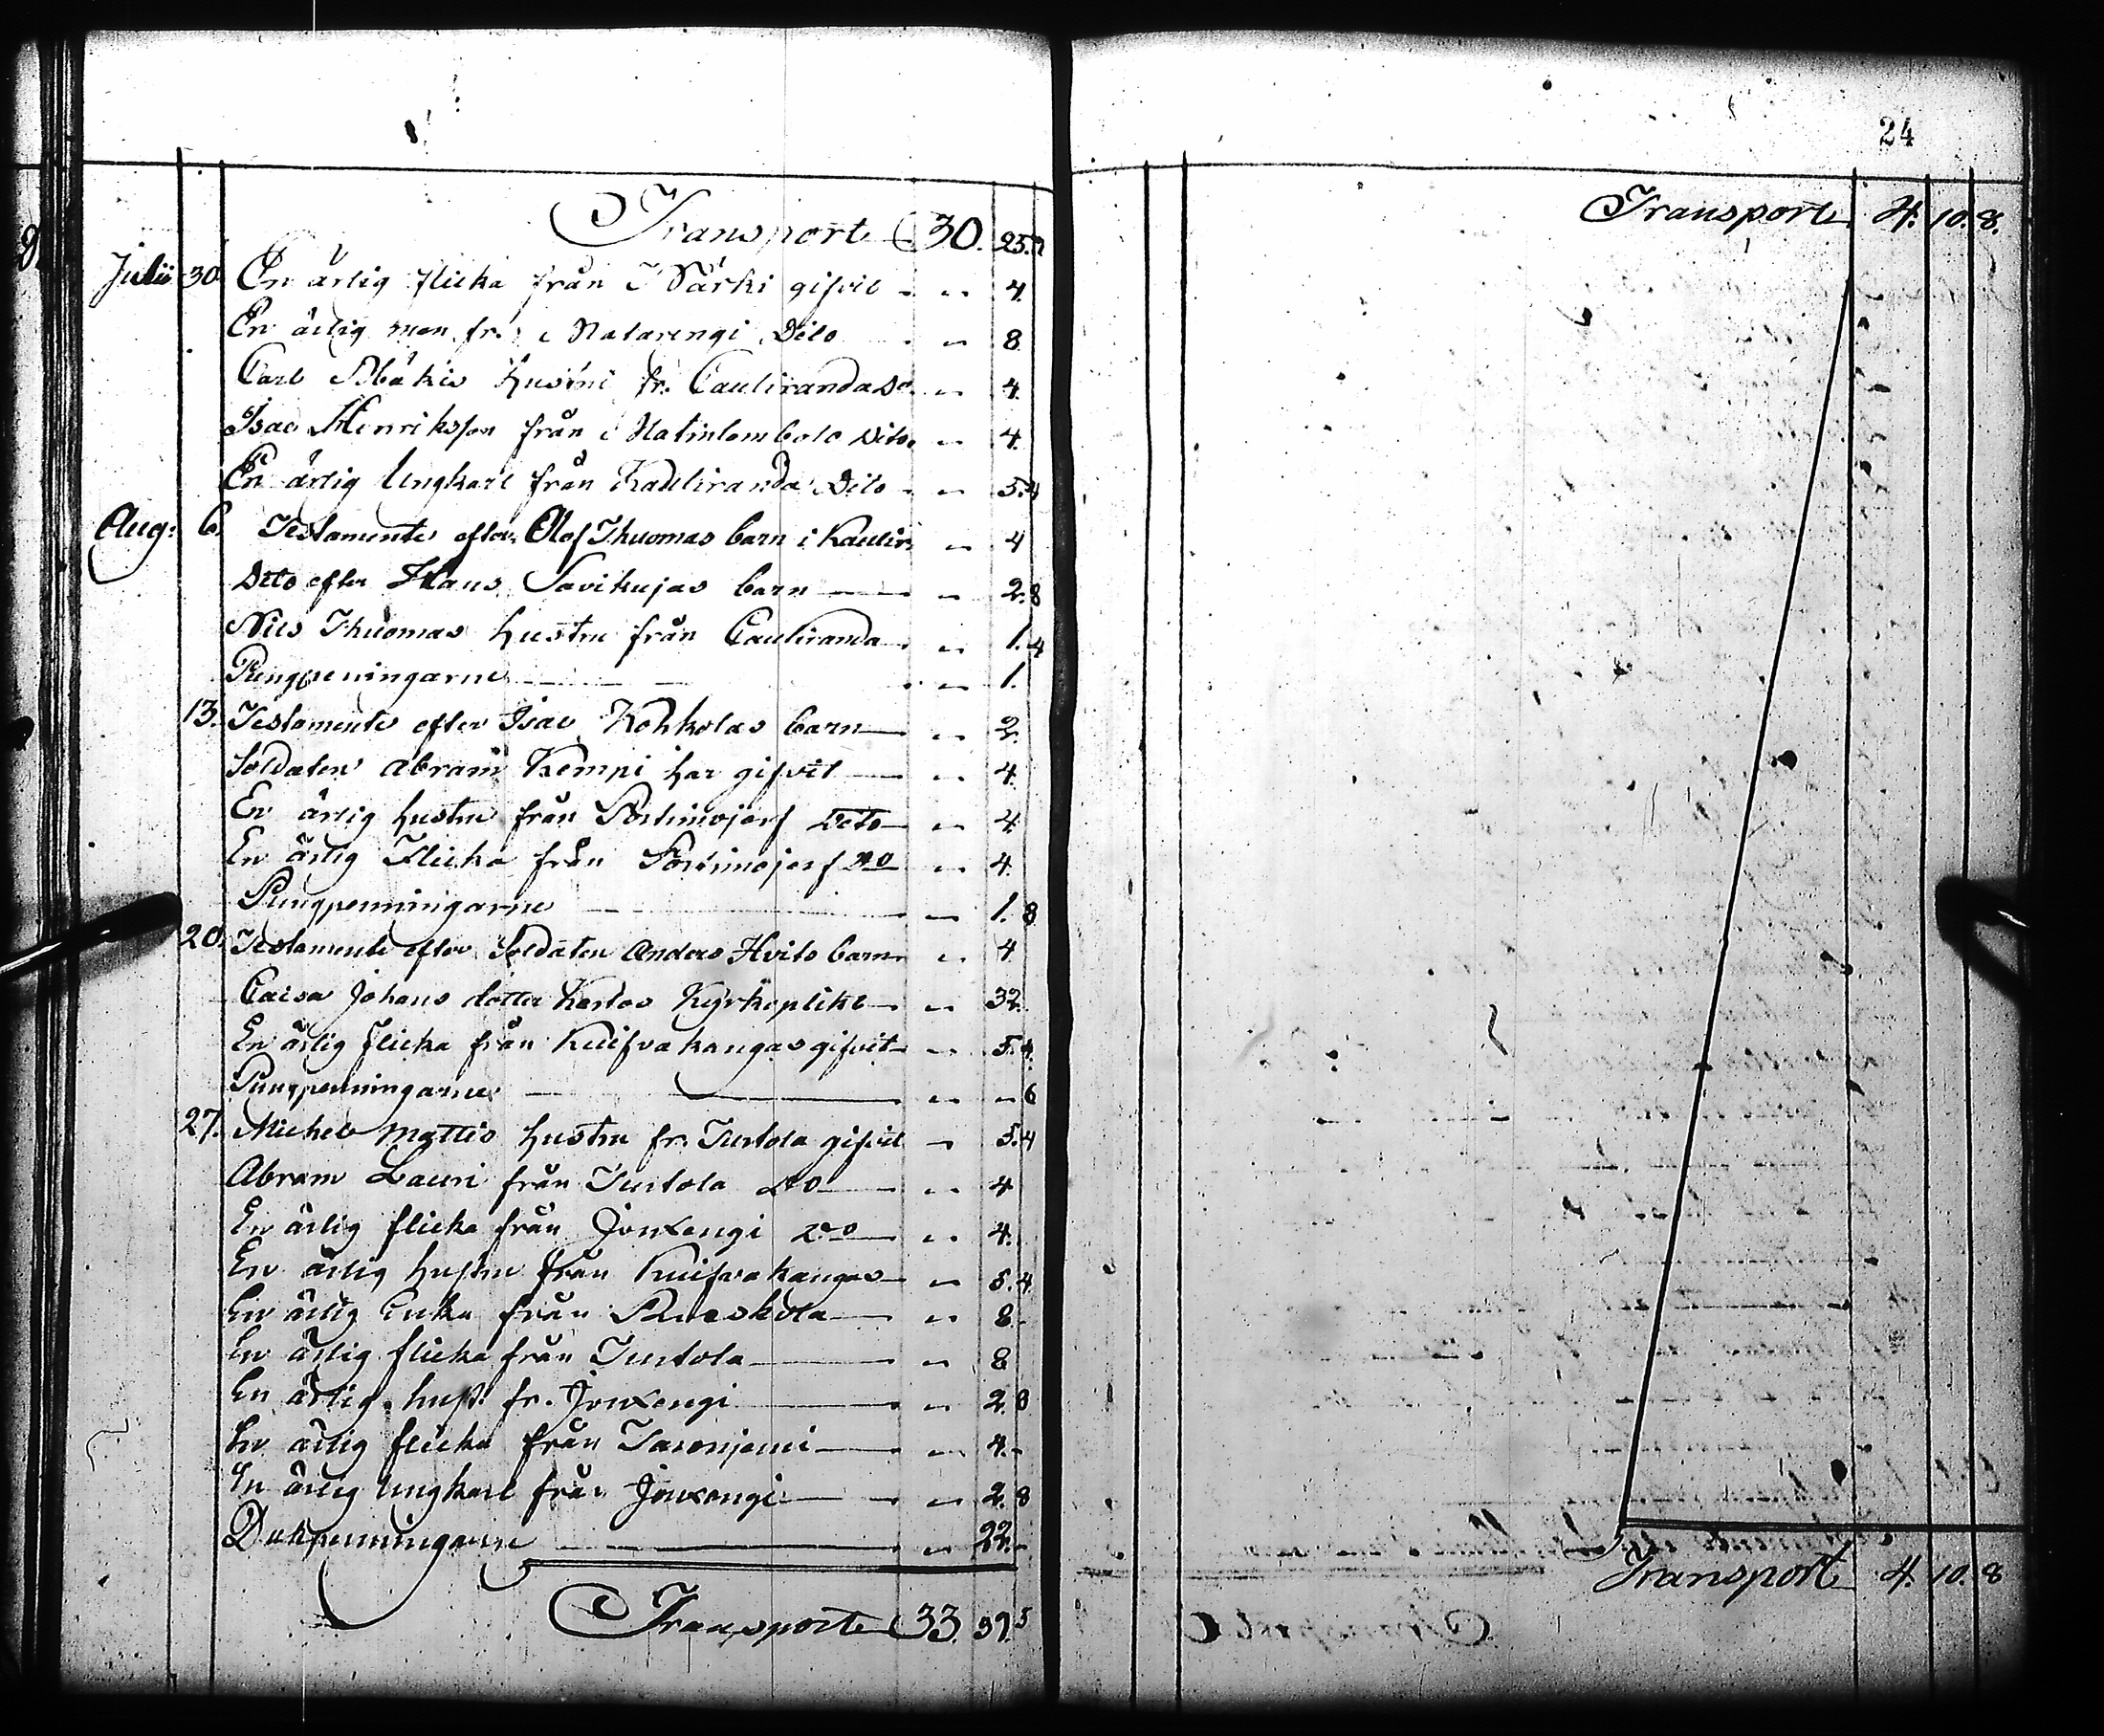 24
Transport 30. 25.
Julii 30 En ärlig flicka från Närki gifvit - " 4.
En ärlig man fr. Matarengi Dito " 8.
Carl hustru fr. Cauliranda Do " 4.
Isac Henriksson från Dito " 4.
En ärlig Ungkarl från Kauliranda Dito " 5. 4
Aug: 6. Testamente efter Olof Thuomas barn i Kaulir: " 4
Dito efter Hans Savikujas barn " 2. 8
Nils Thuomas hustru från Cauliranda " 1. 4
Pungpeningarne " 1.
13. Testamente efter Isac Kohkolas barn " 2.
Soldaten Abram Kempi har gifvit " 4.
En ärlig hustru från Portimojerf Dito " 4
En ärlig Flicka från Portimojerf Do " 4.
Pungpenningarne " 1. 8
20. Testamente efter Soldaten Anders Hvits barn " 4
Caisa Johans dotter Kyrkoplikt " 32.
En ärlig flicka från Kuifvakangas gifvit " 5. 4.
Pungpenningarne " " 6
27. Michel Mattis hustru fr. Turtola gifvit " 5. 4
Abram Lauri från Turtola Do " 4
En ärlig flicka från Jouxengi Do " 4.
En ärlig hustru från Kuifvakangas " 5. 4
En ärlig Enka från Ruoskola " 8.
En ärlig flicka från Turtola " 8
En ärlig hust. fr. Jouxengi " 2. 8
En ärlig flicka från " 4. -
En ärlig Ungkarl från Jouxengi " 2. 8
Dukpenningarne " 22. -
Transport 33. 37. 5
Transport 4. 10. 8.
Transport 4. 10. 8